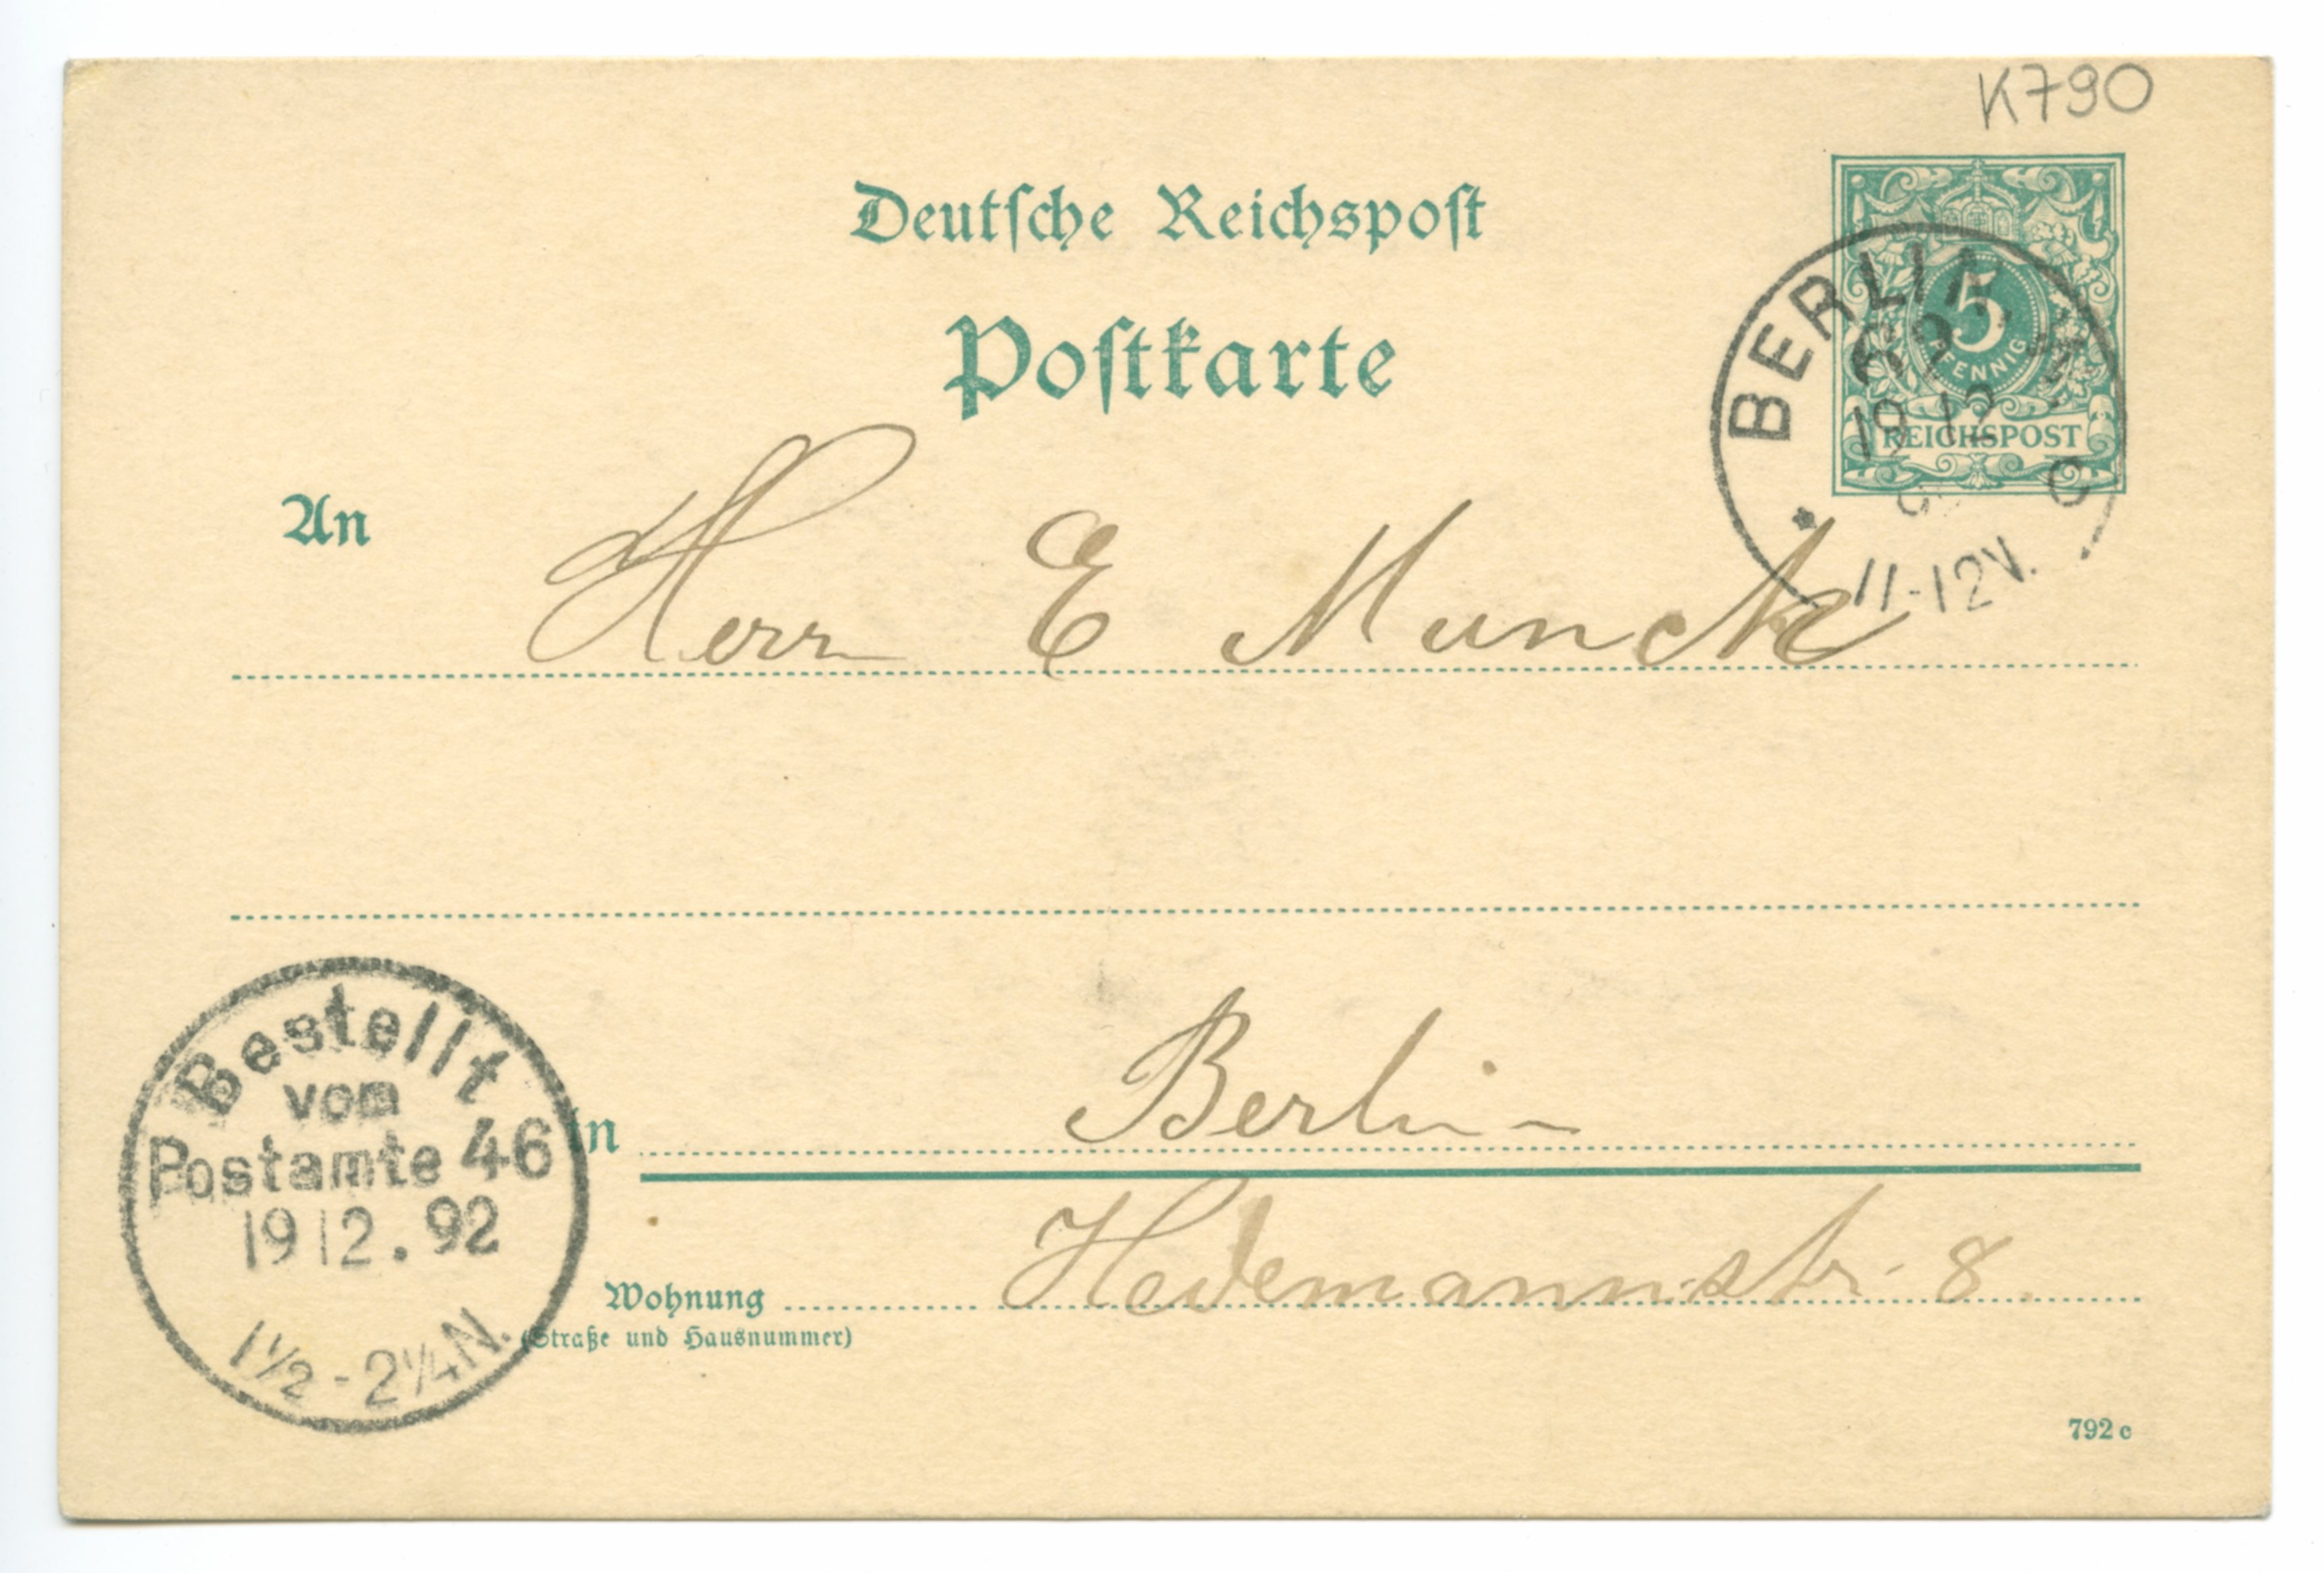 K790
Deutsche Reichspost
Postkarte
5
PFENNIG
REICHSPOST
BERLIN
19 12
11-12V.
An Herr E Munck
Bestellt
vom
Postamte 46
19 12. 92
1½-2¼N.
in Berlin
Wohnung Hedemannstr. 8.
(Straße und Hausnummer)
792 c